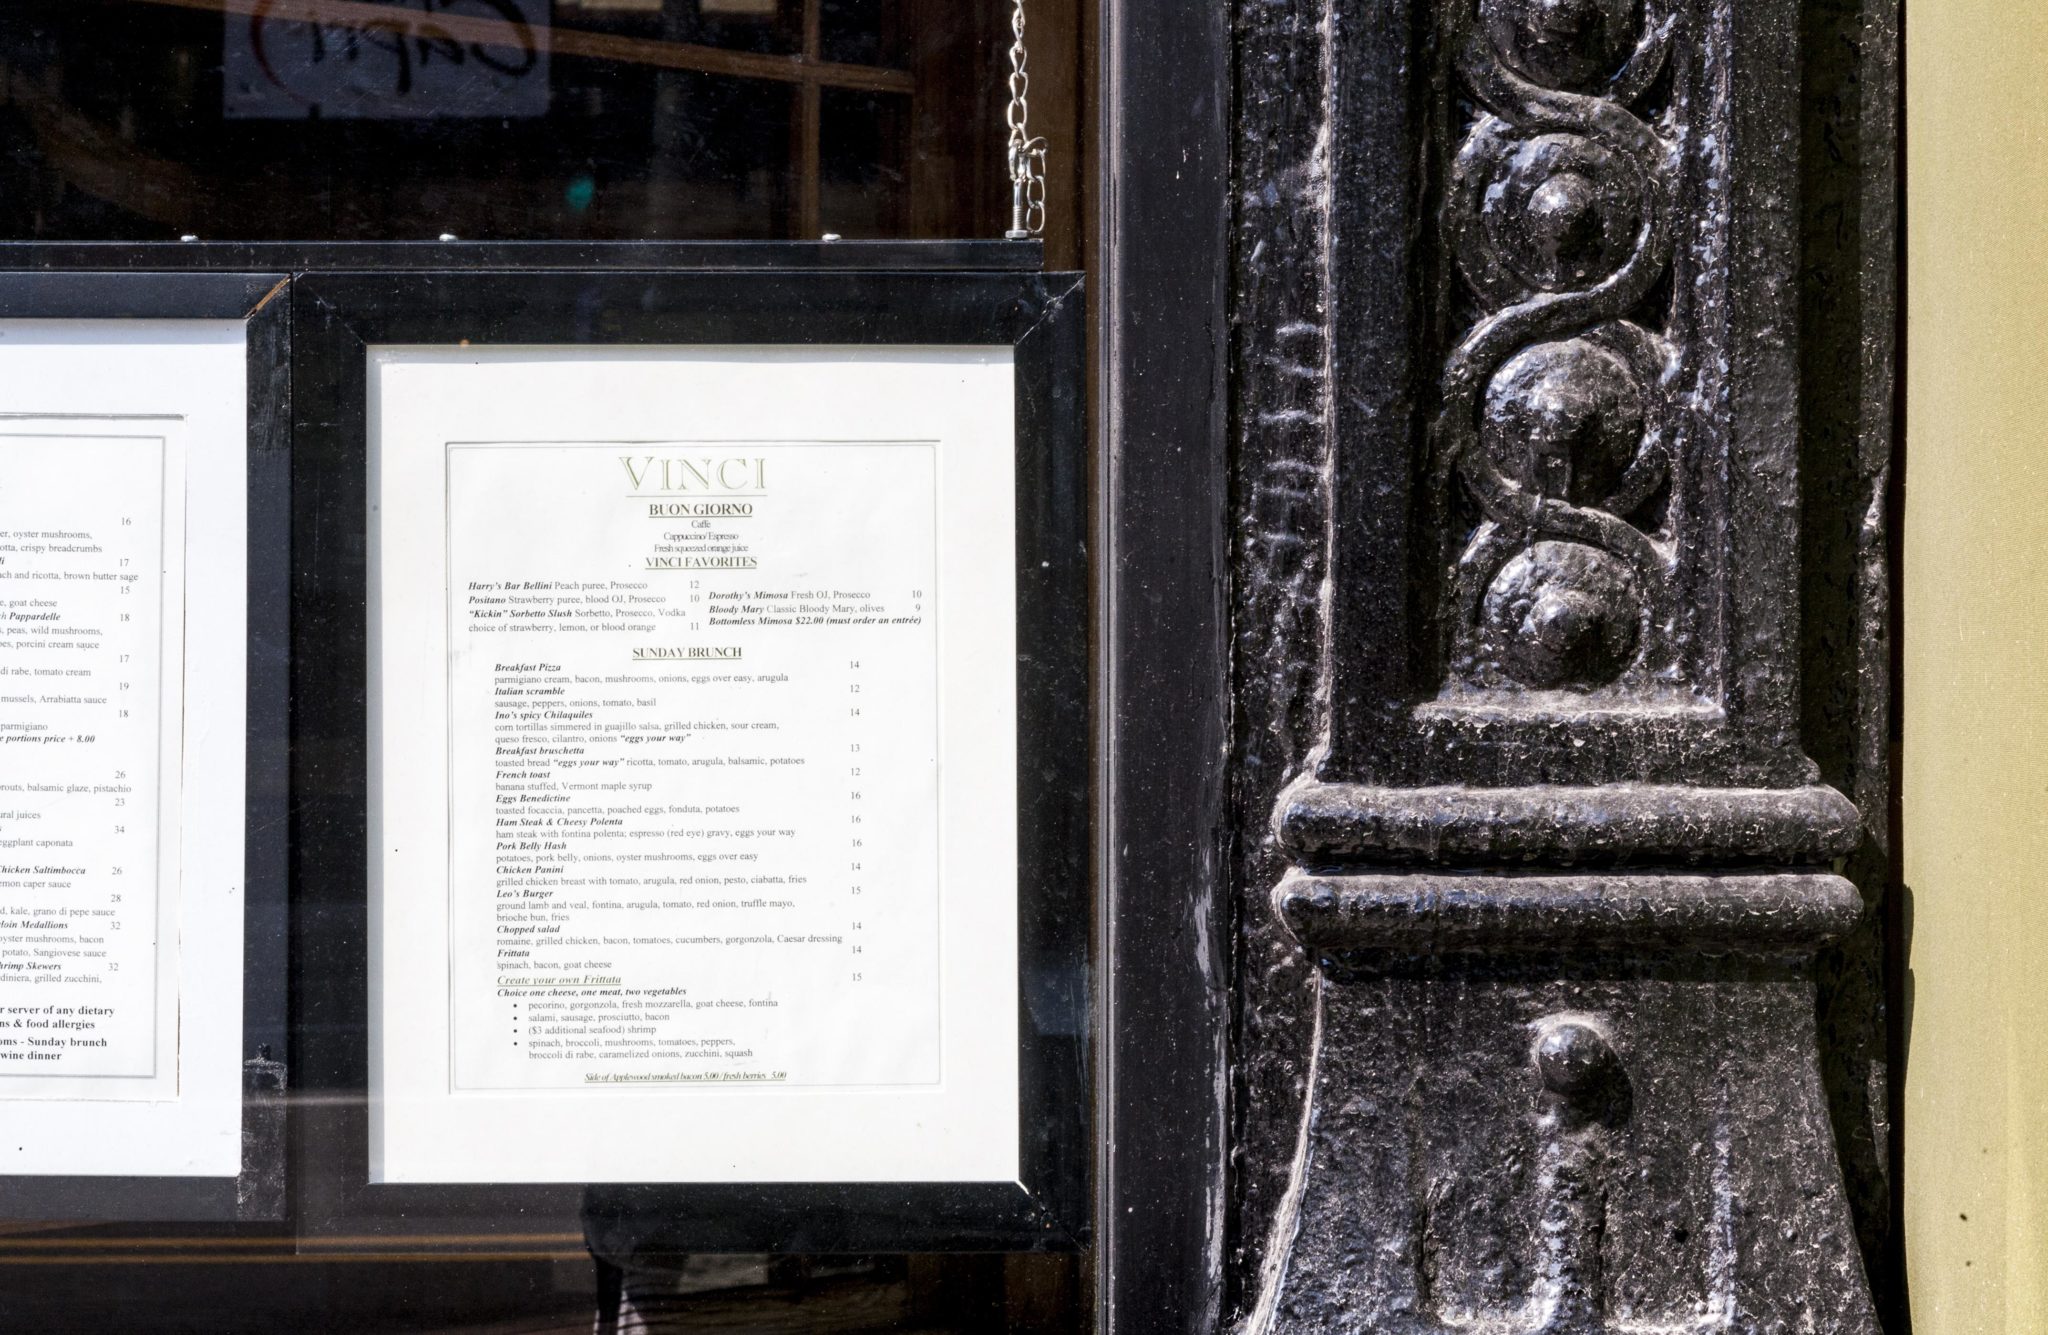 Capri
16
er, oyster mushrooms,
otta, crispy breadcrumbs
17
ach and ricotta, brown butter sage
15
e, goat cheese
h Pappardelle 18
s, peas, wild mushrooms,
oes, porcini cream sauce
17
di rabe, tomato cream
19
mussels, Arrabiatta sauce
18
parmigiano
e portions price + 8.00
26
prouts, balsamic glaze, pistachio
23
ural juices
34
eggplant caponata
Chicken Saltimbocca 26
emon caper sauce
28
d, kale, grano di pepe sauce
loin Medallions 32
oyster mushrooms, bacon
potato, Sangiovese sauce
hrimp Skewers 32
diniera, grilled zucchini,
r server of any dietary
ns & food allergies
oms - Sunday brunch
wine dinner
VINCI
BUON GIORNO
Caffe
Cappuccino/ Espresso
Fresh squeezed orange juice
VINCI FAVORITES
Harry's Bar Bellini Peach puree, Prosecco 12
Positano Strawberry puree, blood OJ, Prosecco 10
"Kickin" Sorbetto Slush Sorbetto, Prosecco, Vodka
choice of strawberry, lemon, or blood orange 11
Dorothy's Mimosa Fresh OJ, Prosecco 10
Bloody Mary Classic Bloody Mary, olives 9
Bottomless Mimosa $22.00 (must order an entrée)
SUNDAY BRUNCH
Breakfast Pizza 14
parmigiano cream, bacon, mushrooms, onions, eggs over easy, arugula
Italian scramble 12
sausage, peppers, onions, tomato, basil
Ino's spicy Chilaquiles 14
corn tortillas simmered in guajillo salsa, grilled chicken, sour cream,
queso fresco, cilantro, onions "eggs your way"
Breakfast bruschetta 13
toasted bread "eggs your way" ricotta, tomato, arugula, balsamic, potatoes
French toast 12
banana stuffed, Vermont maple syrup
Eggs Benedictine 16
toasted focaccia, pancetta, poached eggs, fonduta, potatoes
Ham Steak & Cheesy Polenta 16
ham steak with fontina polenta; espresso (red eye) gravy, eggs your way
Pork Belly Hash 16
potatoes, pork belly, onions, oyster mushrooms, eggs over easy
Chicken Panini 14
grilled chicken breast with tomato, arugula, red onion, pesto, ciabatta, fries
Leo's Burger 15
ground lamb and veal, fontina, arugula, tomato, red onion, truffle mayo,
brioche bun, fries
Chopped salad 14
romaine, grilled chicken, bacon, tomatoes, cucumbers, gorgonzola, Caesar dressing
Frittata 14
spinach, bacon, goat cheese
Create your own Frittata 15
Choice one cheese, one meat, two vegetables
• pecorino, gorgonzola, fresh mozzarella, goat cheese, fontina
• salami, sausage, prosciutto, bacon
• ($3 additional seafood) shrimp
• spinach, broccoli, mushrooms, tomatoes, peppers,
broccoli di rabe, caramelized onions, zucchini, squash
Side of Applewood smoked bacon 5.00 / fresh berries 5.00